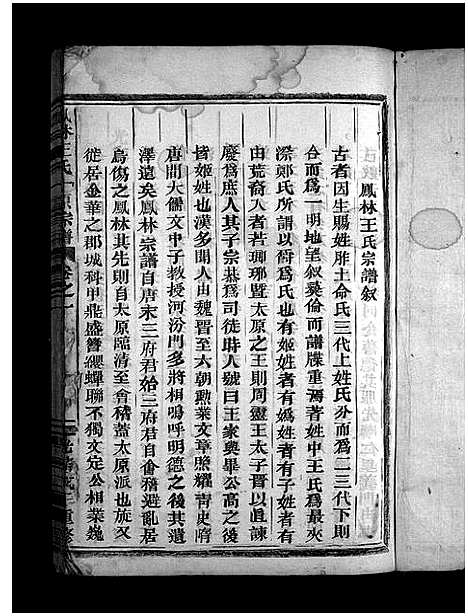 鳳林王氏宗譜叙
古者因生賜姓胙土命氏三代上姓氏分而爲二三代下則
合而爲一明地望叙彝倫而譜牒重焉著姓中王氏爲最夾
漈鄭氏所謂以爵爲氏也有姬姓者有媯姓者有子姓者有
由荒裔入者若瑯琊暨太原之王則周靈王太子晉以直諫
廢爲庶人其子宗恭爲司徒時人號曰王家與畢公高之後
皆姬姓也漢多聞人由魏晋至六朝勲業文章照耀青史隋
唐間大儒文中子教授河汾門多將相嗚呼明德之後其遺
澤遠矣鳳林宗譜自唐末三府君始三府君自會稽避亂居
烏傷之鳳林其先則自太原臨清至會稽蓋太原派也旋又
徙居金華之郡城科甲鼎盛簪纓蟬聯不獨文定公相業巍
鳳林王氏
宗譜
卷之一